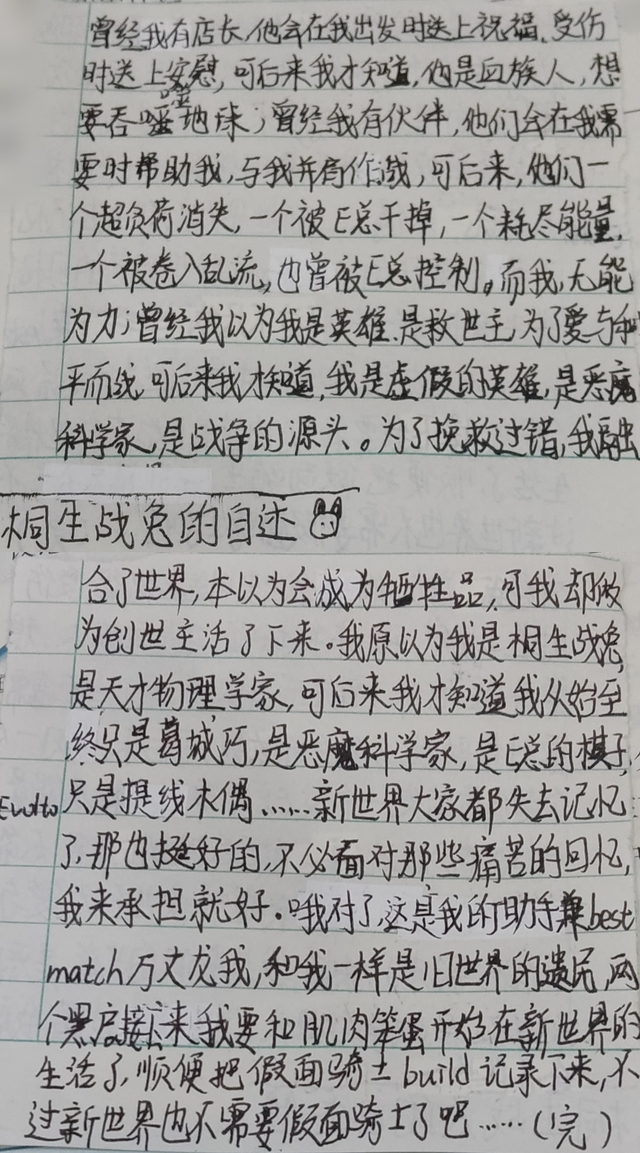 曾经我有店长,他会在我出发时送上祝福、受伤
时送上安慰,可后来我才知道,他是血族人,想
要吞噬地球;曾经我有伙伴,他们会在我需
要时帮助我,与我并肩作战,可后来,他们一
个超负荷消失,一个被E总干掉,一个耗尽能量,
一个被卷入乱流,也曾被E总控制。而我,无能
为力;曾经我以为我是英雄、是救世主,为了爱与和
平而战,可后来我才知道,我是虚假的英雄,是恶魔
科学家,是战争的源头。为了挽救过错,我融
桐生战兔的自述
合了世界,本以为会成为牺牲品,可我却做
为创世主活了下来。我原以为我是桐生战兔,
是天才物理学家,可后来我才知道我从始至
终只是葛城巧,是恶魔科学家,是E总的棋子,
Evolto 只是提线木偶……新世界大家都失去记忆
了,那也挺好的,不必面对那些痛苦的回忆,
我来承担就好。哦对了,这是我的助手兼best
match万丈龙我,和我一样是旧世界的遗民,两
个黑户接下来我要和肌肉笨蛋开始在新世界的
生活了,顺便把假面骑士build记录下来,不
过新世界也不需要假面骑士了吧……(完)